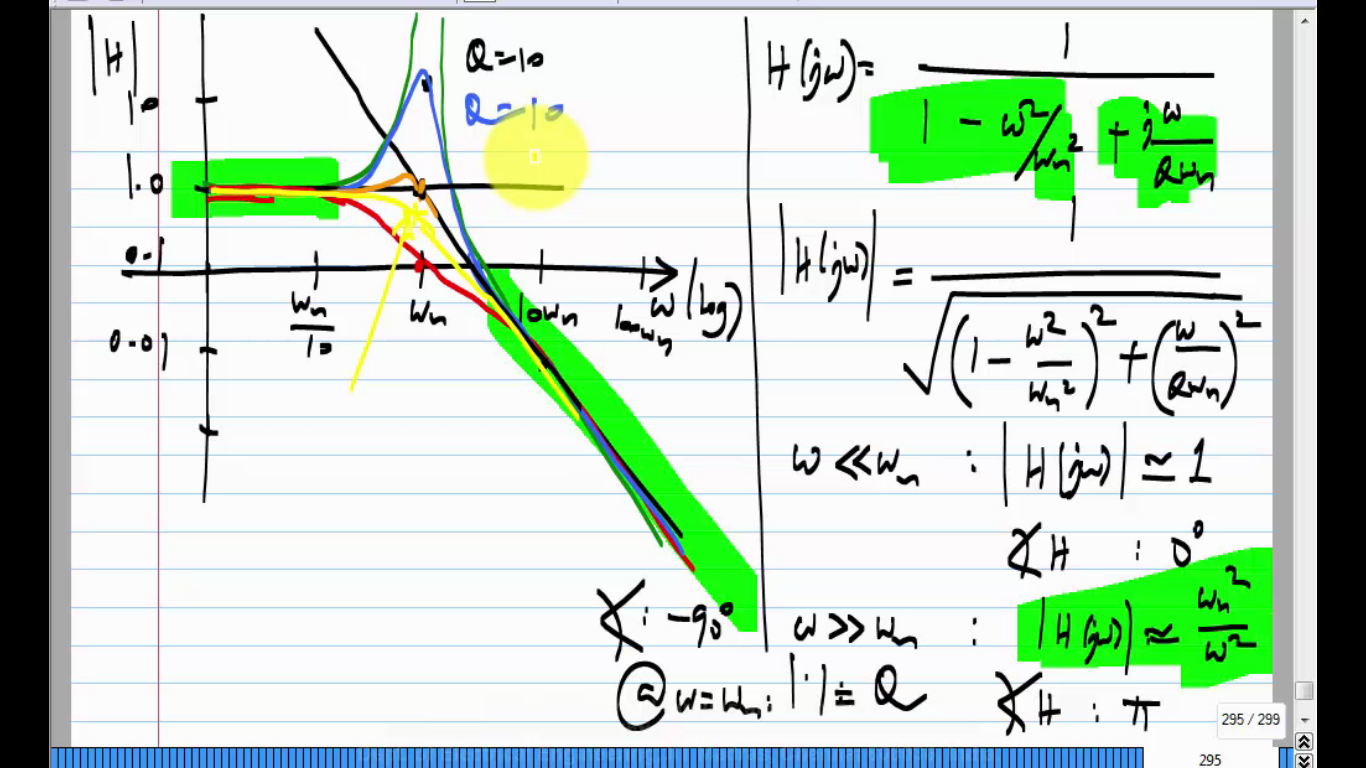 |H|
10
1.0
0.1
0.01
ωn/10
ωn
10ωn
100ωn
ω (log)
Q=10
Q=10
∢ : -90°
@ ω=ωn : |·| = Q
H(jω) = 1 / (1 - ω²/ωn² + jω/Qωn)
|H(jω)| = 1 / √((1 - ω²/ωn²)² + (ω/Qωn)²)
ω ≪ ωn : |H(jω)| ≃ 1
∢H : 0°
ω >> ωn : |H(jω)| ≃ ωn²/ω²
∢H : π
295 / 299
295